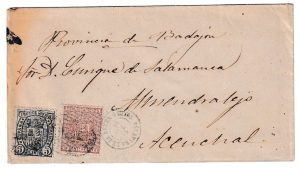 Provincia de Badajoz
por D. Enrique de Salamanca
Almendralejo
Aceuchal
5 5